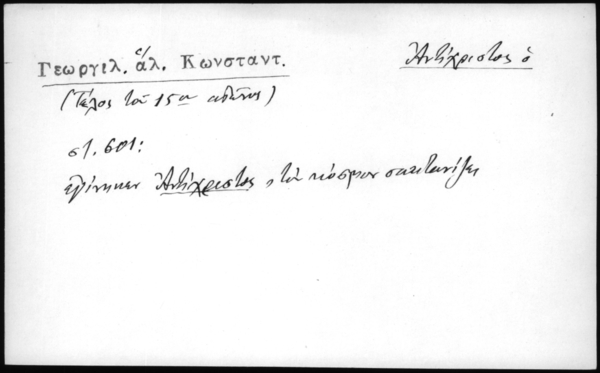 Γεωργιλ. ἅλ. Κωνσταντ.
Ἀντίχριστος ὁ
(Τέλος τοῦ 15ου αἰῶνος)
στ. 601:
ἐγίνηκεν Ἀντίχριστος, τὸν κόσμον σκετανίζει